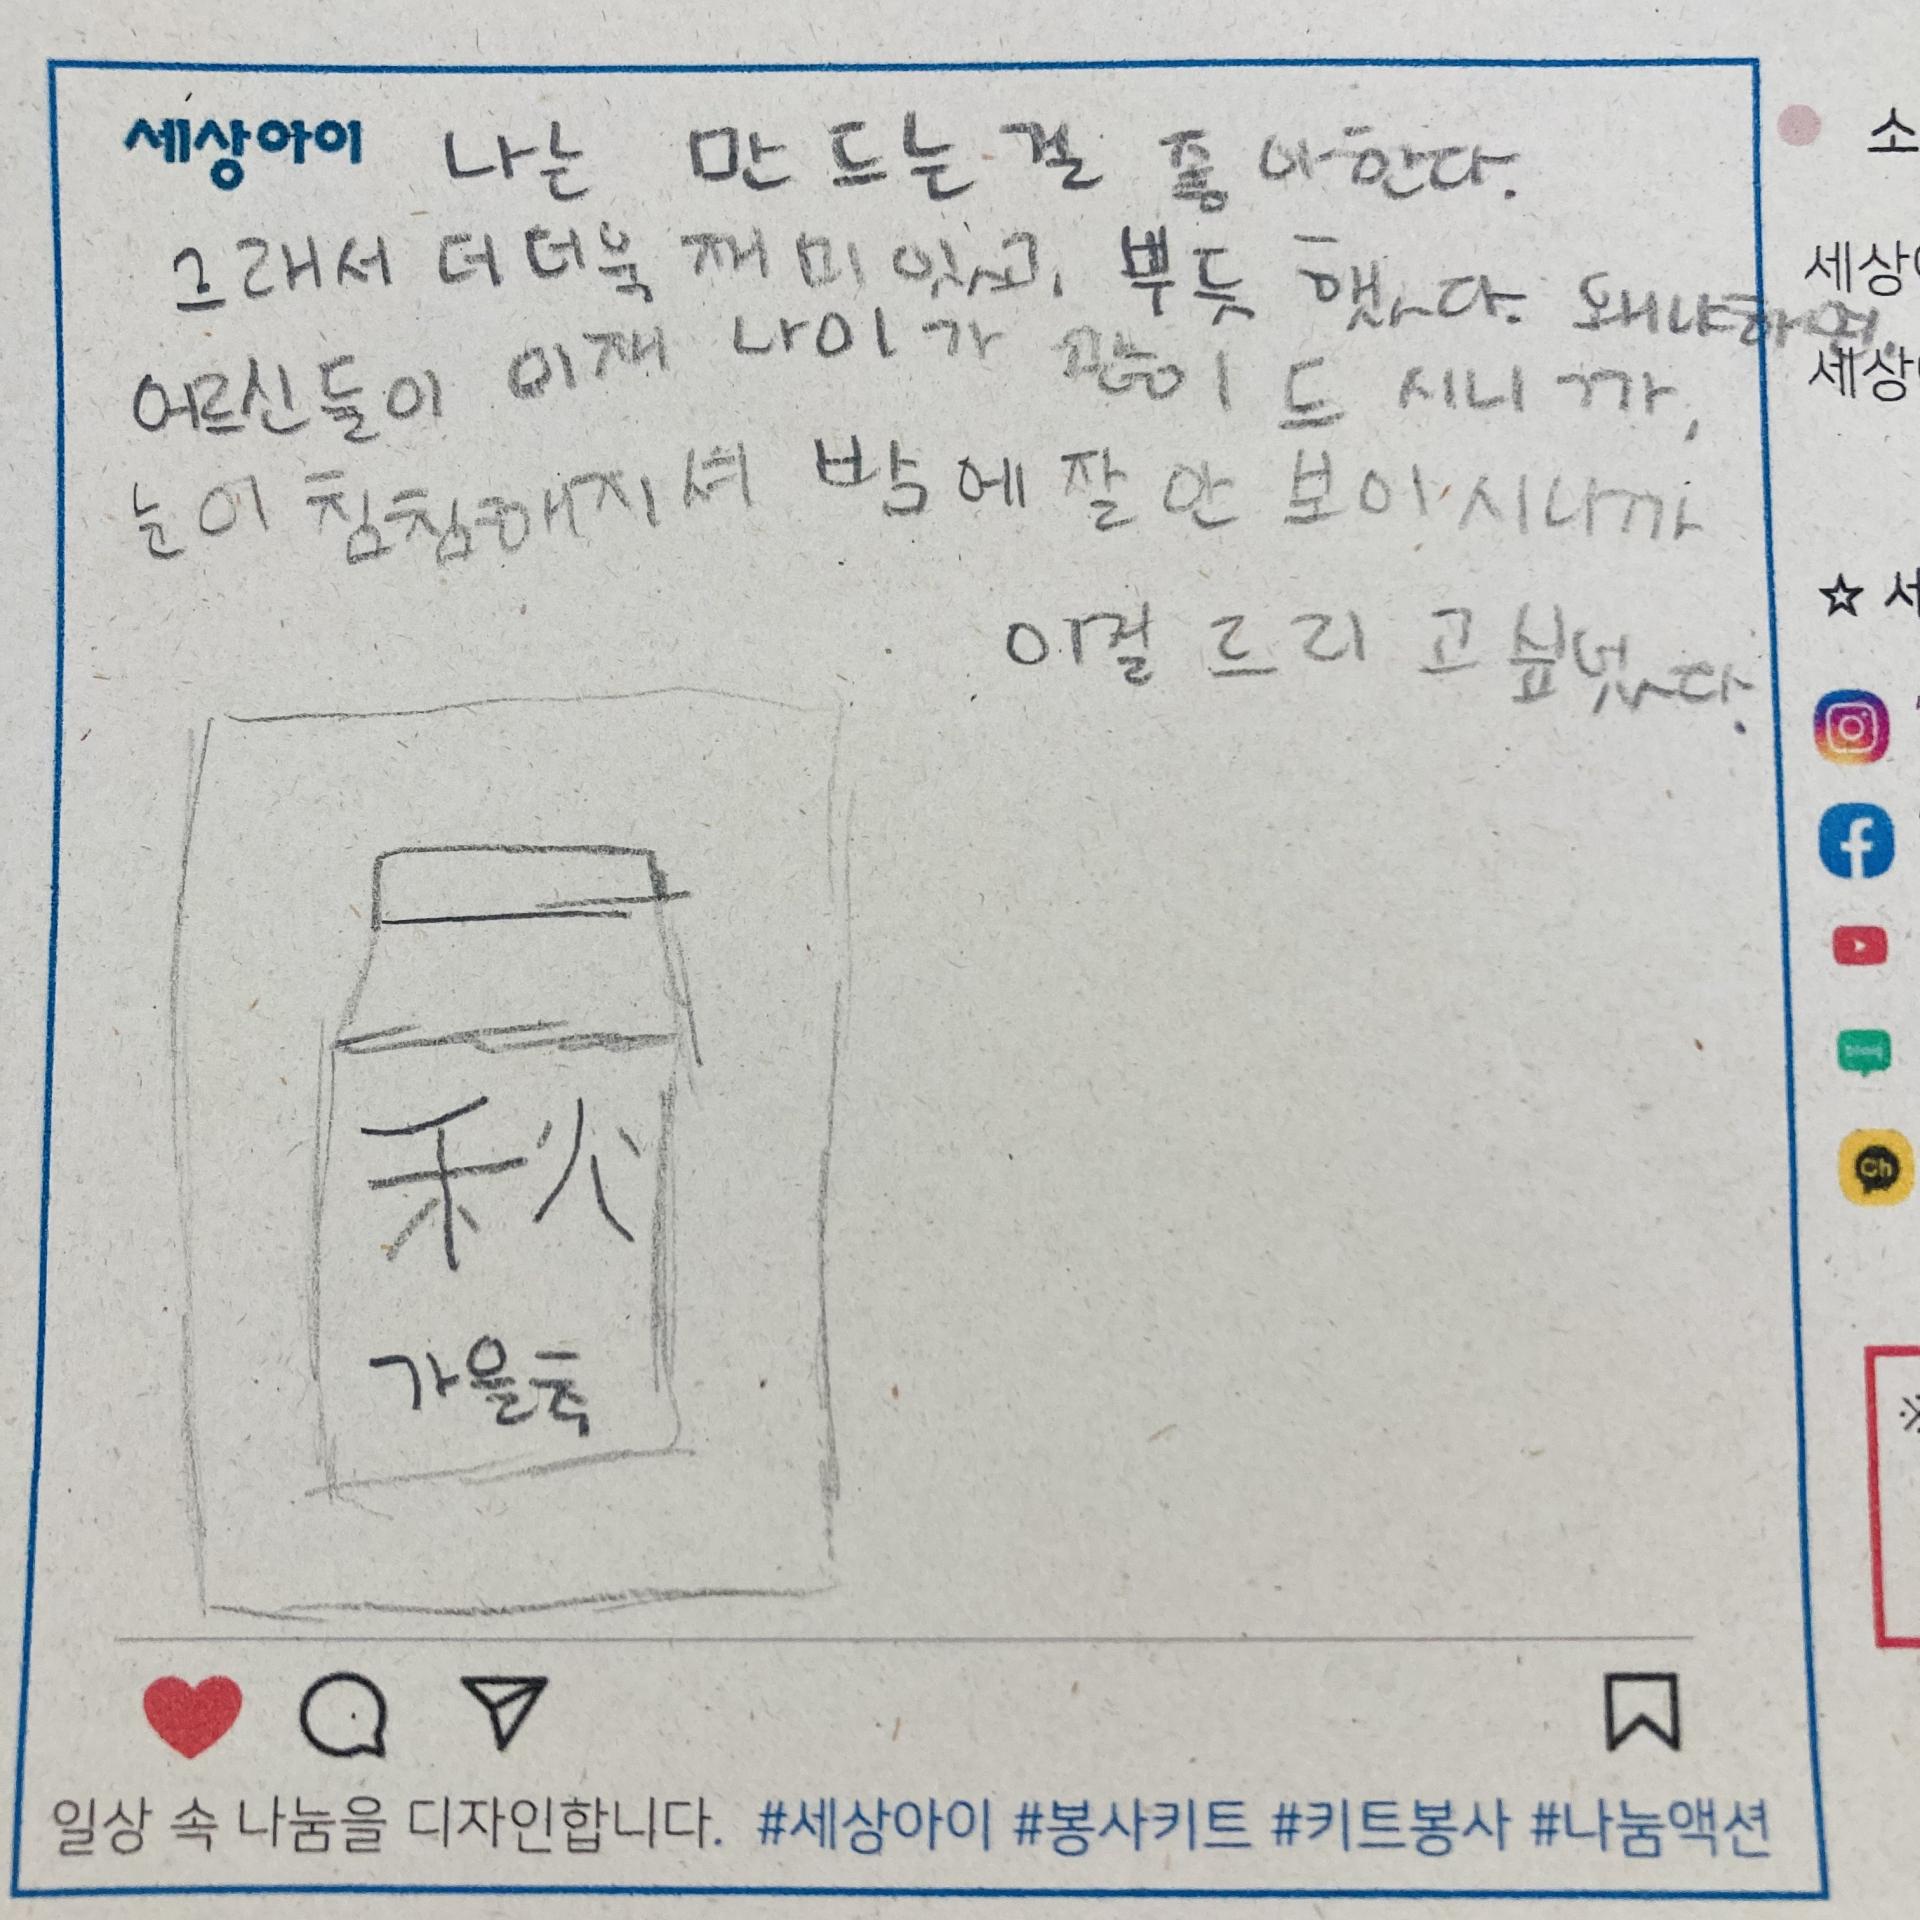 세상아이 나는 만드는걸 좋아한다.
그래서 더더욱 재미있고, 뿌듯했다. 왜냐하면,
어르신들이 이재 나이가 많이 드시니까,
눈이 침침해지셔 밤에 잘 안 보이시니까
이걸 드리고 싶었다.
秋
가을추
일상 속 나눔을 디자인합니다. #세상아이 #봉사키트 #키트봉사 #나눔액션
소
세상
세상
☆ 서
blog
Ch
※